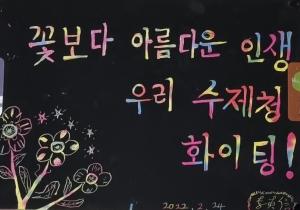 꽃보다 아름다운 인생
우리 수제청
화이팅!
2022. 2. 24